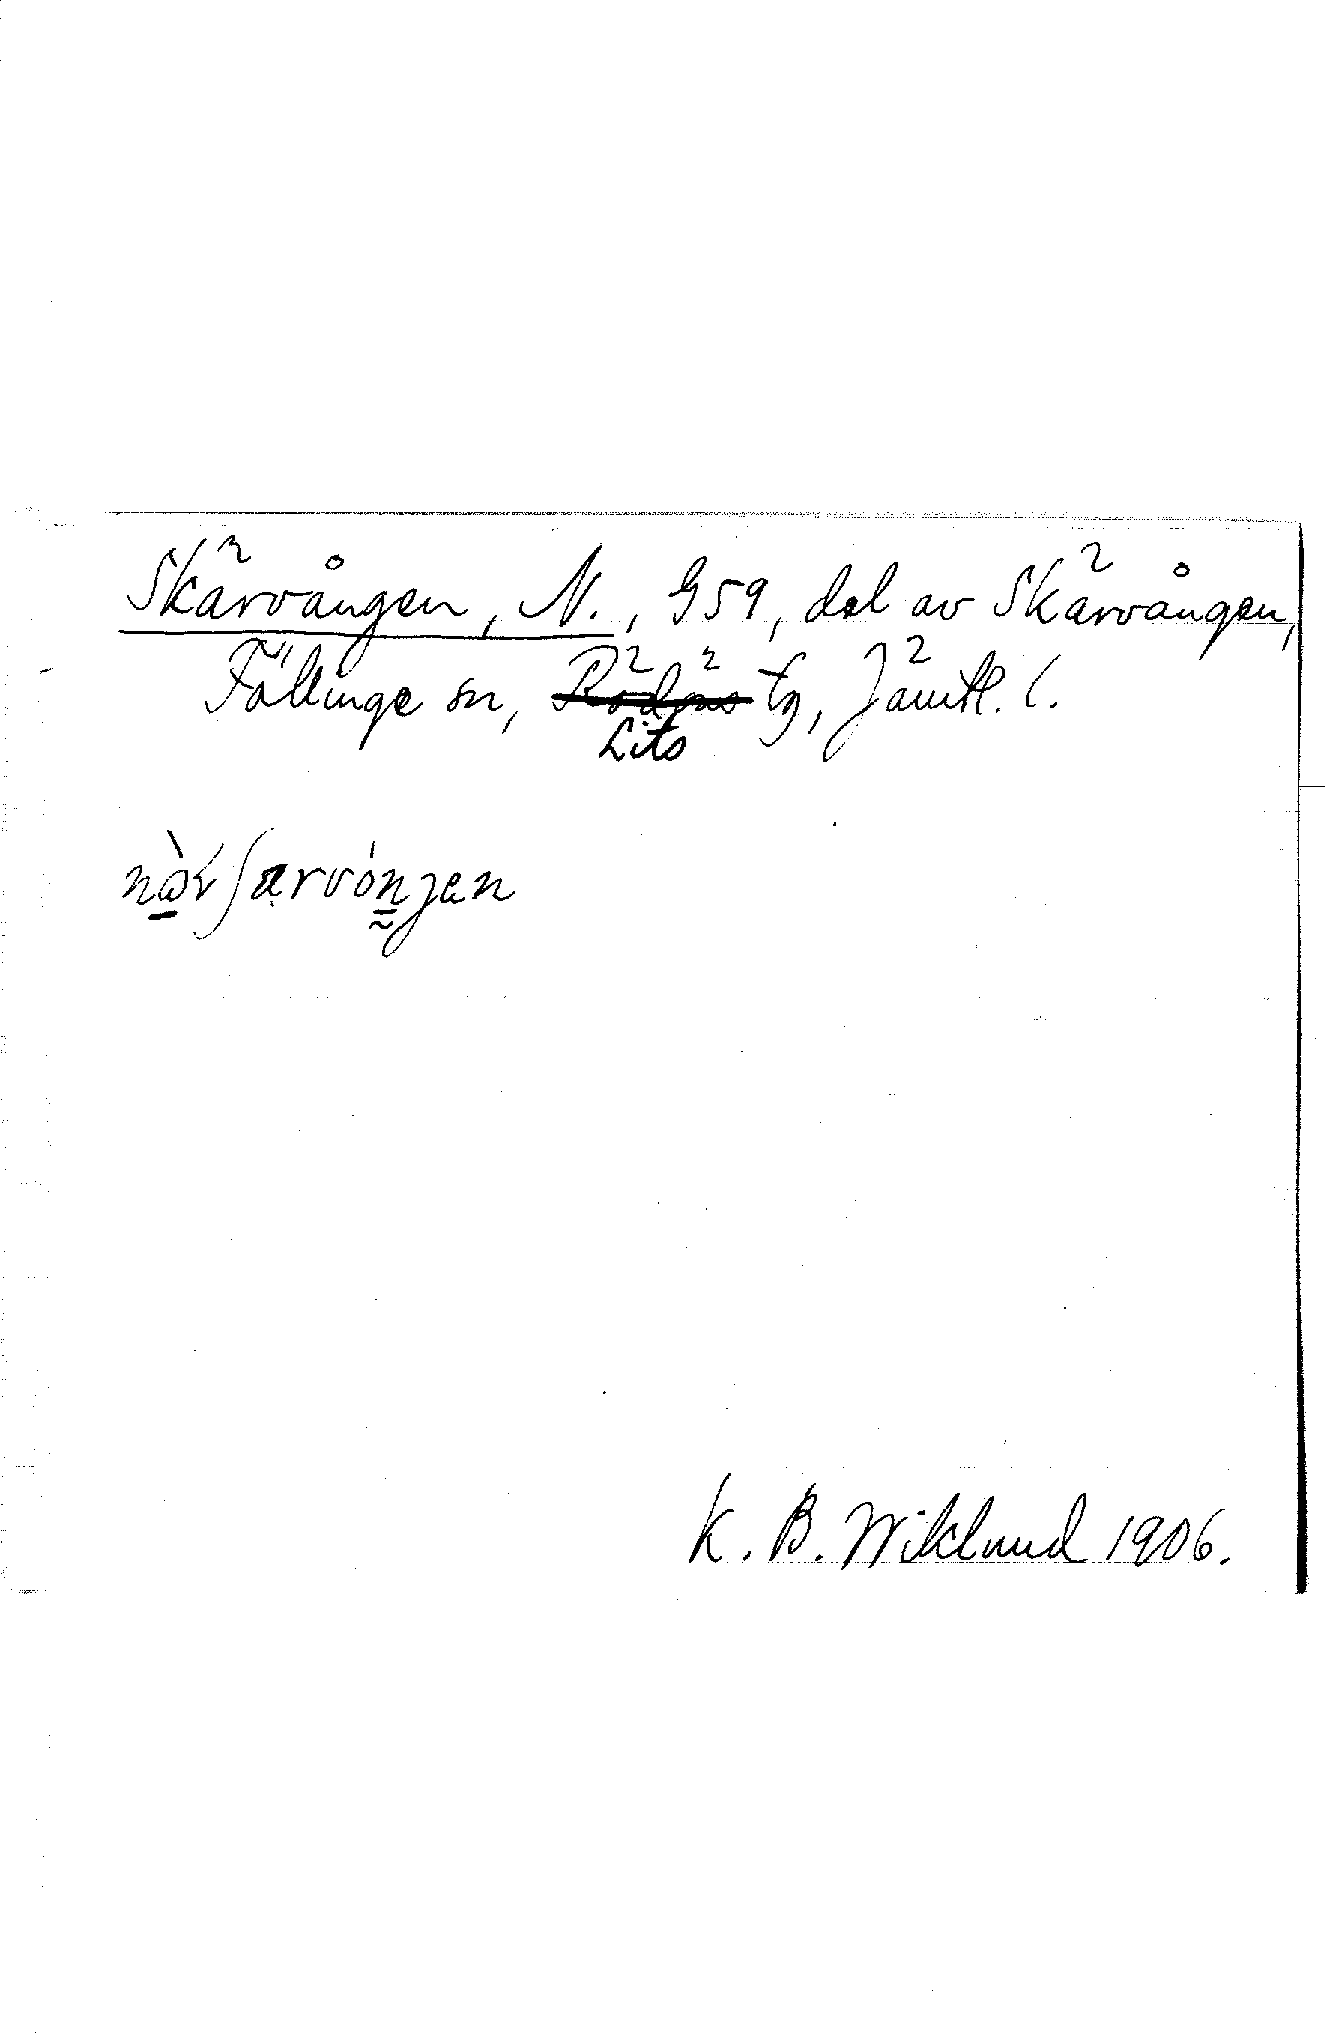 Skärvången, N., G59, del av Skärvången,
Föllinge sn, Rödöns tg, Jämtl. l.
Lits
nò̱rʃærvón̳jen
K. B. Wiklund 1906.